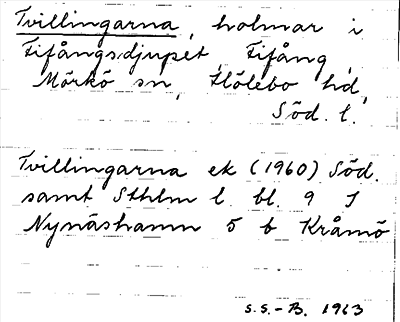 Tvillingarna, holmar i
Fifångsdjupet, Fifång,
Mörkö sn, Hölebo hd,
Söd. l.
Tvillingarna ek (1960) Söd.
samt Sthlm l. bl. 9 I
Nynäshamn 5 b Kråmö
S.S.-B. 1963